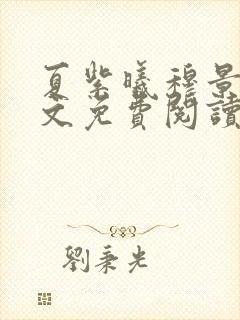 夏紫曦穆景
文免費閱讀
劉秉光